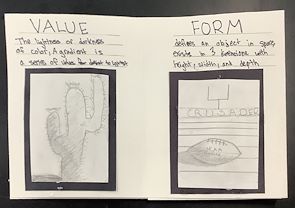 VALUE
The lightness or darkness
of color, A gradient is
a series of value from darkest to lightest
FORM
defines an object in space,
exists in 3 dimensions with
height, width, and depth
CRUSADER